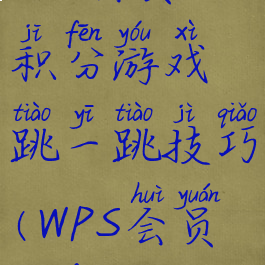 jī fēn yóu xì
积分游戏
tiào yī tiào jì qiǎo
跳一跳技巧
huì yuán
(WPS会员